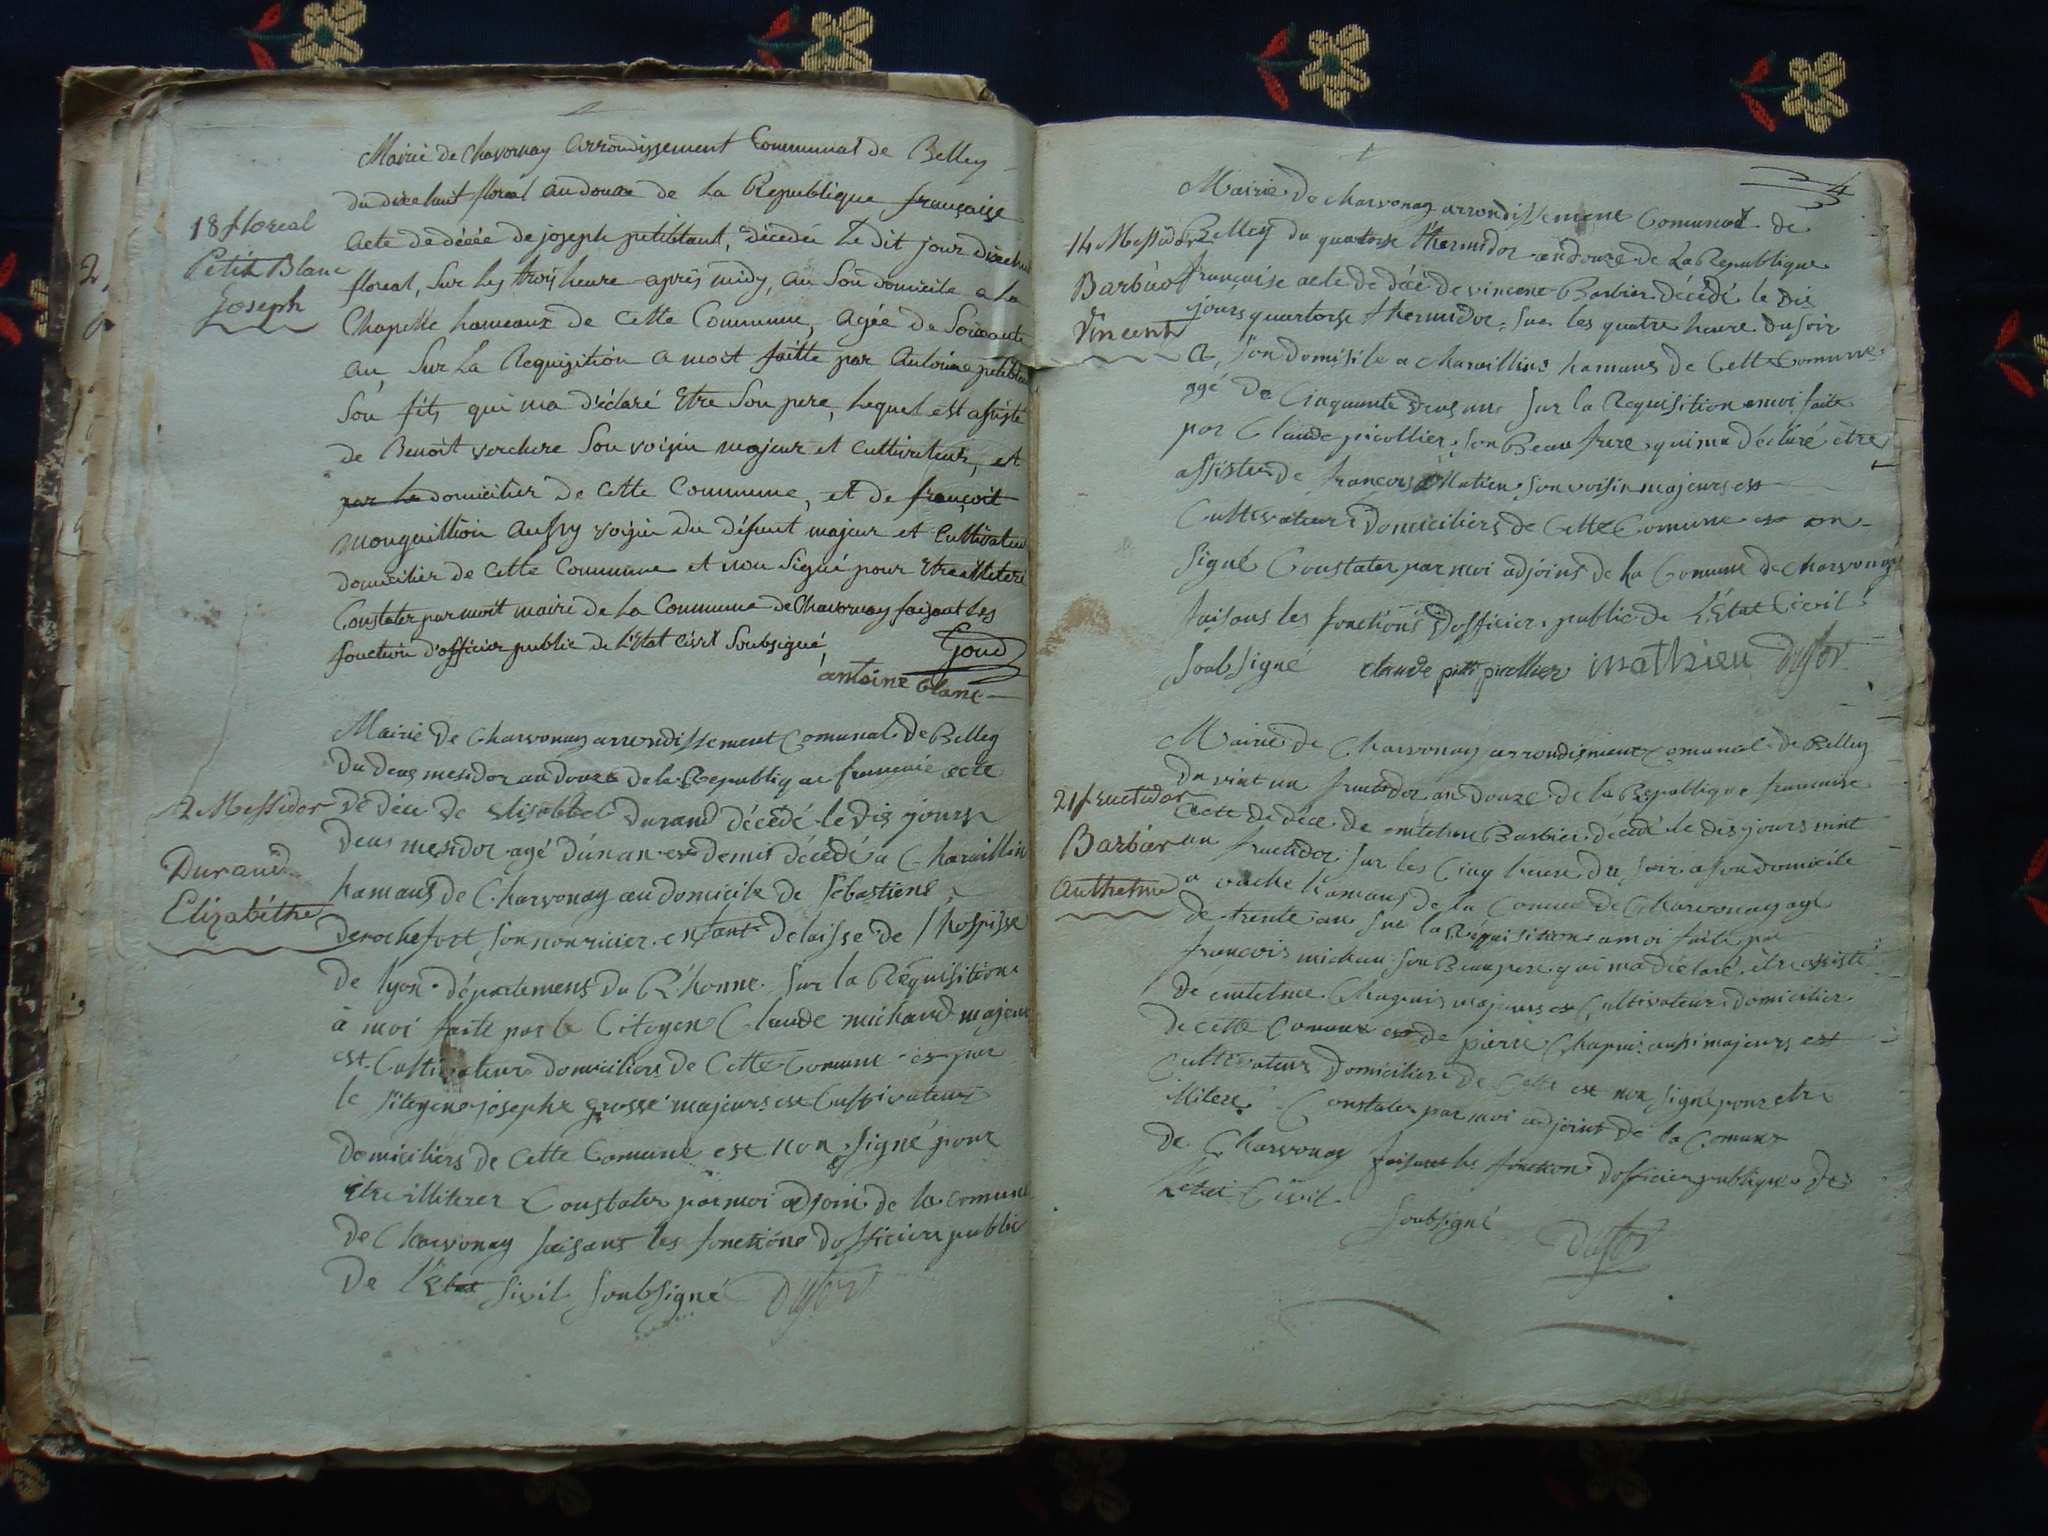 Mairie de Chavornay arrondissement Communal de Belley
du dixehuit floreal an douze de La Republique française
18 floreal
Petit Blanc
Joseph
acte de décée de joseph petiblant, décedée Le dit jour dixehui
floreal, sur les trois heure après midy, au son domicile a la
Chapelle hameaux de cette Commune, agée de soixante
an, sur La Requizition a moit faitte par Antoine petiblan
son fils, qui ma déclaré Etre son pere, lequel est assisté
de Benoit verchere son voisin majeur et cultivateur, et
par le domicilier de cette Commune, et de françoit
monguillion aussy voisin du défunt majeur et Cultivateu
domicilier de cette Commune et non signé pour Etre illiteré
Constater par moit maire de La Commune de Chavornay faisant les
fonction d'officier public de l'Etat civil soubsigné,
Goud
antoine blanc
Mairie de Charvonay arrondissement Comunal de Belley
Du deus mesidor an douze de la Republique francaise acte
2 Messidor
Durand
Elizabéthe
de déce de Elisabbet Durand décédé le dis jours
deus mesidor agé dunan et demis décédé a Charaillin
hamaus de Charvonay au domicile de sebastiens
derochefort son nouricier enfant delaisse de l'hospisse
de lyon département du Rhonne sur la Réquisition
à moi faite par le Citoyen Claude michaud majeur
est Cultivateur domiciliers de Cette Comune et par
le sitoyens josephe grosse majeurs est Cultivateur
domiciliers de Cette Comune est non signé pour
etre illiterer Constater par moi adjoin de la comune
de Charvonay faisans les fonctions dofficiers public
De l'Etat sivil soubsigné Dufour
4
Mairie de charvonay arrondissement Comunal de
14 Messidor
Barbier
Vincent
Belley du quatorse thermidor an douze de La Republique
francaise acte de déce de vincent Barbier décédé le dis
jours quartorse thermidor, sur les quatre heure du soir
a son domisile a Charaillins hamaus de Cette Comune
agé de Cinquante deus ans sur la Requisition a moi faite
par Claude picollier son Beau frere qui ma déclaré être
assister de francois Matieu son voisin majeurs est
Cultivateurs domiciliers de Cette Comune et on
signé Constater par moi adjoins de la Comune de Charvonay
faisans les fonctions dofficier public de l'Etat Civil
soubsigné claude picollier mathieu Dufour
Mairie de Charvonay arrondisment Comunal de Belley
21 fructidor
Barbier
Anthelme
du vint un fructidor an douze de la Republique francaise
acte de déce de entelme Barbier décedé le dis jours vint
un fructidor sur les Cinq heure du soir a son domicile
a vache hamaus de la Comune de Charvonay agé
de trente an sur la Requisition a moi faite par
francois michau son Beau pere qui ma déclaré etre assisté
de entelme Chapuis majeurs et Cultivateur domicilier
de cette Comune et de pierre Chapuis aussi majeurs est
Cultivateurs domiciliers de Cette est non signé pour etre
iliteré Constater par moi adjoint de la Comune
de Charvonay faisant les fonction dofficier publique de
l'etat Civil
soubsigné
Dufour